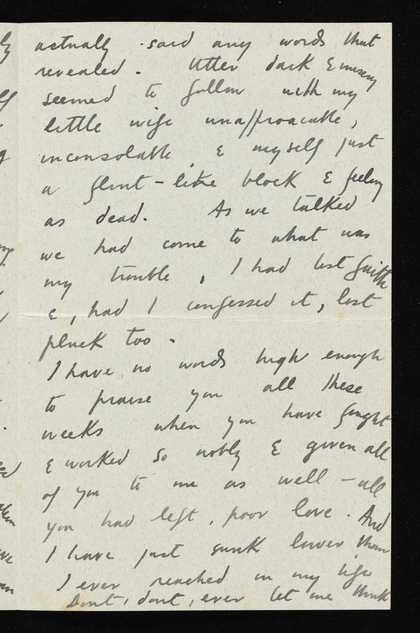 actually said any words that
revealed. Utter dark & misery
seemed to follow with my
little wife unapproacable,
inconsolable, & myself just
a flint-like block & feeling
as dead. As we talked
we had come to what was
my trouble, I had lost faith
&, had I confessed it, lost
pluck too.
I have no words high enough
to praise you all these
weeks when you have fought
& worked so nobly & given all
of you to me as well - all
you had left, poor love. And
I have just sunk lower than
I ever reached in my life
Don't, don't, ever let me think